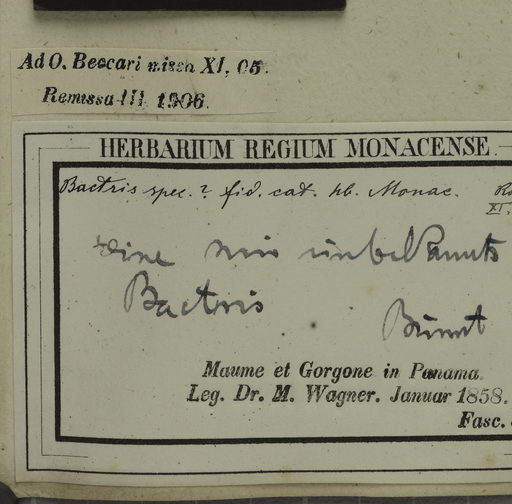 Ad O. Beccari missa XI, 05.
Remissa III 1906.
HERBARIUM REGIUM MONACENSE.
Bactris spec.? fid. cat. hb. Monac.
XI.
eine mir unbekannte
Bactris
Maume et Gorgone in Panama.
Leg. Dr. M. Wagner. Januar 1858.
Fasc.